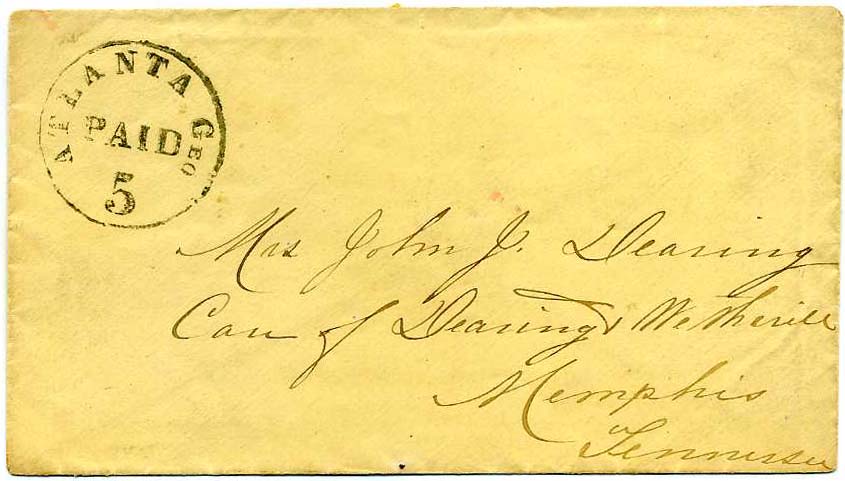 ATLANTA GEO
PAID
5
Mrs John J. Dearing
Care of Dearing & Wetherill
Memphis
Tennessee